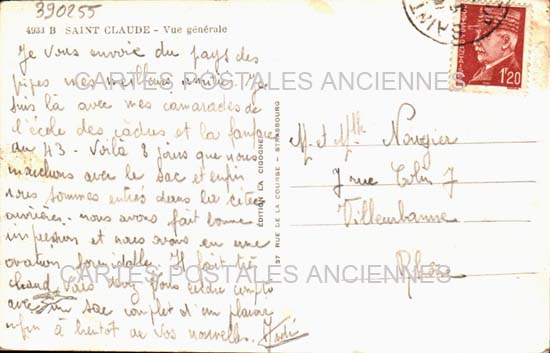 390255
4933 B SAINT CLAUDE - Vue générale
Je vous envoie du pays des
pipes mes meilleurs amitiés. Je
suis là avec mes camarades de
l'école des cadres et la fanfare
du 43 - Voilà 8 jours que nous
marchons avec le sac et enfin
nous sommes entrés dans les cités
ouvrières. nous avons fait bonne
impression et nous avons eu une
ovation formidable. Il fait très
chaud. Vous vous rendre compte
avec un sac complet d'un
enfin à bientôt de vos nouvelles.
CARTES POSTALES ANCIENNES
CARTES POSTALES ANCIENNES
EDITION LA CIGOGNE
37 RUE DE LA COURSE - STRASBOURG
1F20
M. et Mlle Nougier
7 rue Colin
Villeurbanne
Rhône